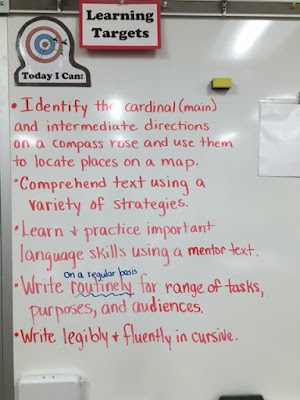 Learning
Targets
Today I Can:
• Identify the cardinal (main)
and intermediate directions
on a compass rose and use them
to locate places on a map.
• Comprehend text using a
variety of strategies.
• Learn + practice important
language skills using a mentor text.
on a regular basis
• Write routinely for range of tasks,
purposes, and audiences.
• Write legibly + fluently in cursive.